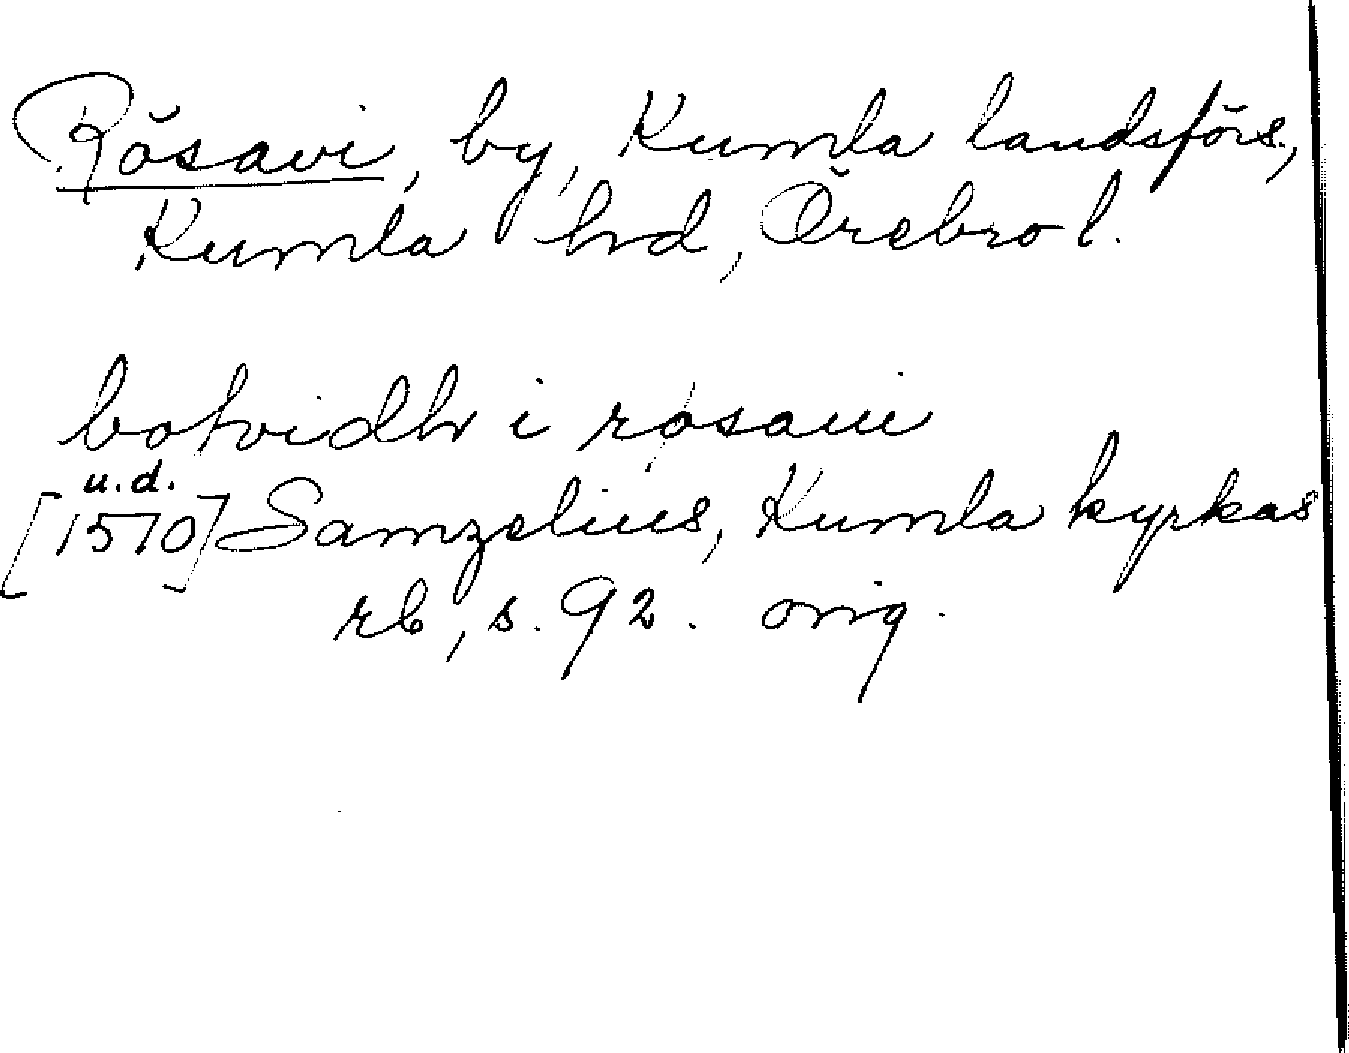 Rösavi, by, Kumla landsförs.,
Kumla hd, Örebro l.
botvidh i røsaui
u.d.
[1510] Samzelius, Kumla kyrkas
rb, s. 92. orig.